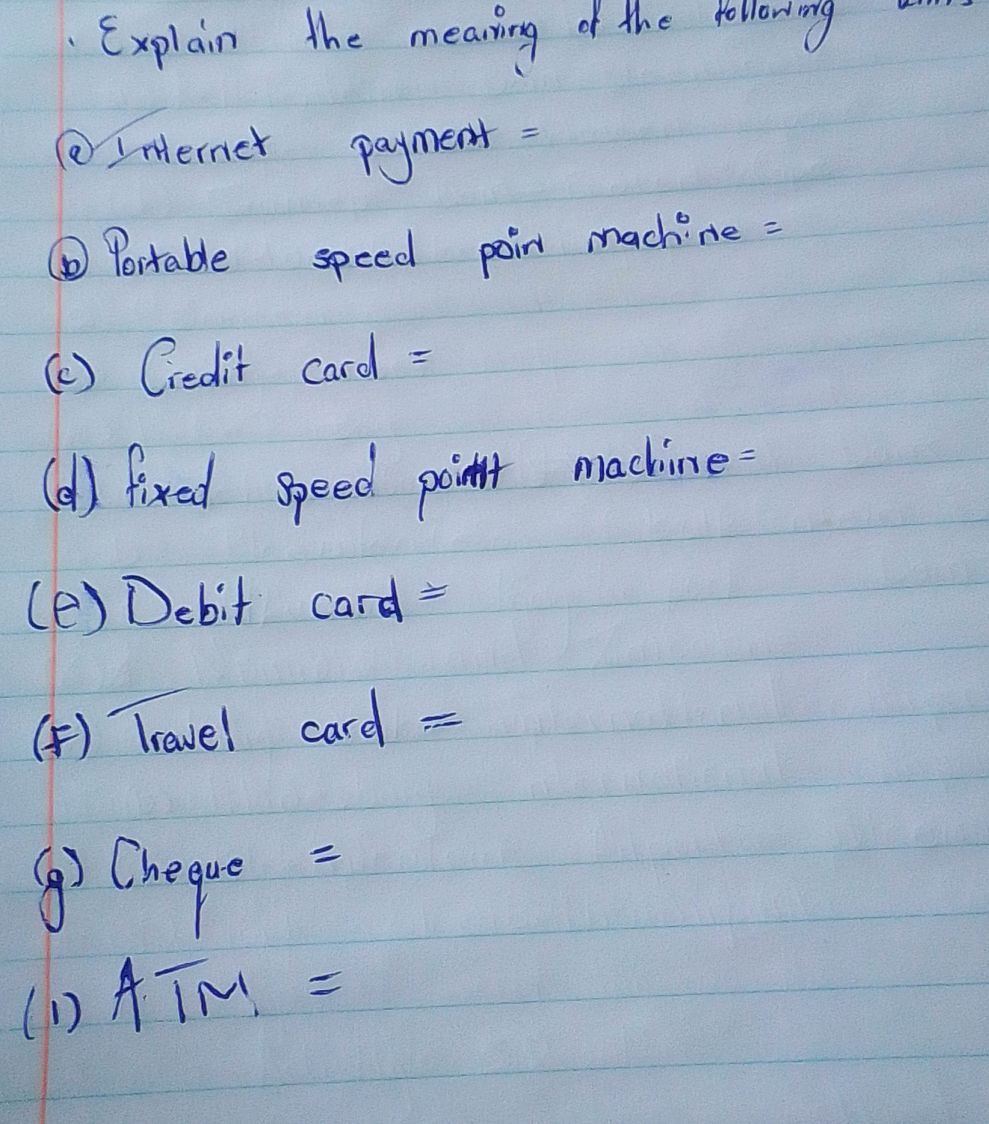 . Explain the meaning of the following
(a) Internet payment =
(b) Portable speed point machine =
(c) Credit card =
(d) fixed speed point machine =
(e) Debit card =
(F) Travel card =
(g) Cheque =
(1) ATM =